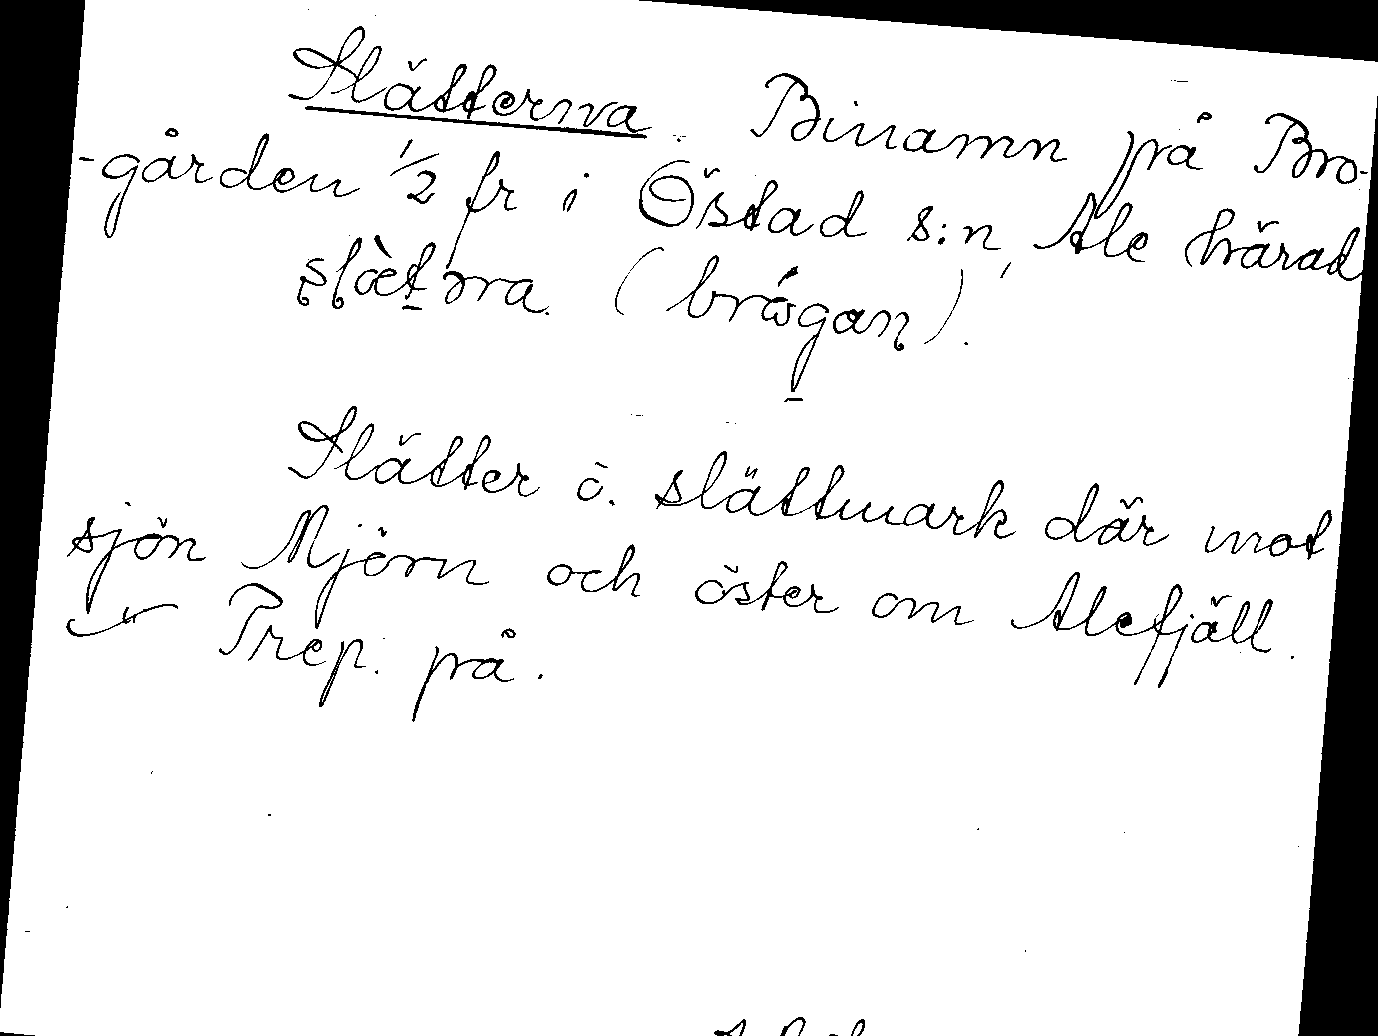 Slätterna. Binamn på Bro-
-gården 1/2 fr i Östad s:n, Ale härad
slæ̀təra. (brógan).
Slätter o. slättmark där mot
sjön Mjörn och öster om Alefjäll.
Prep. på.